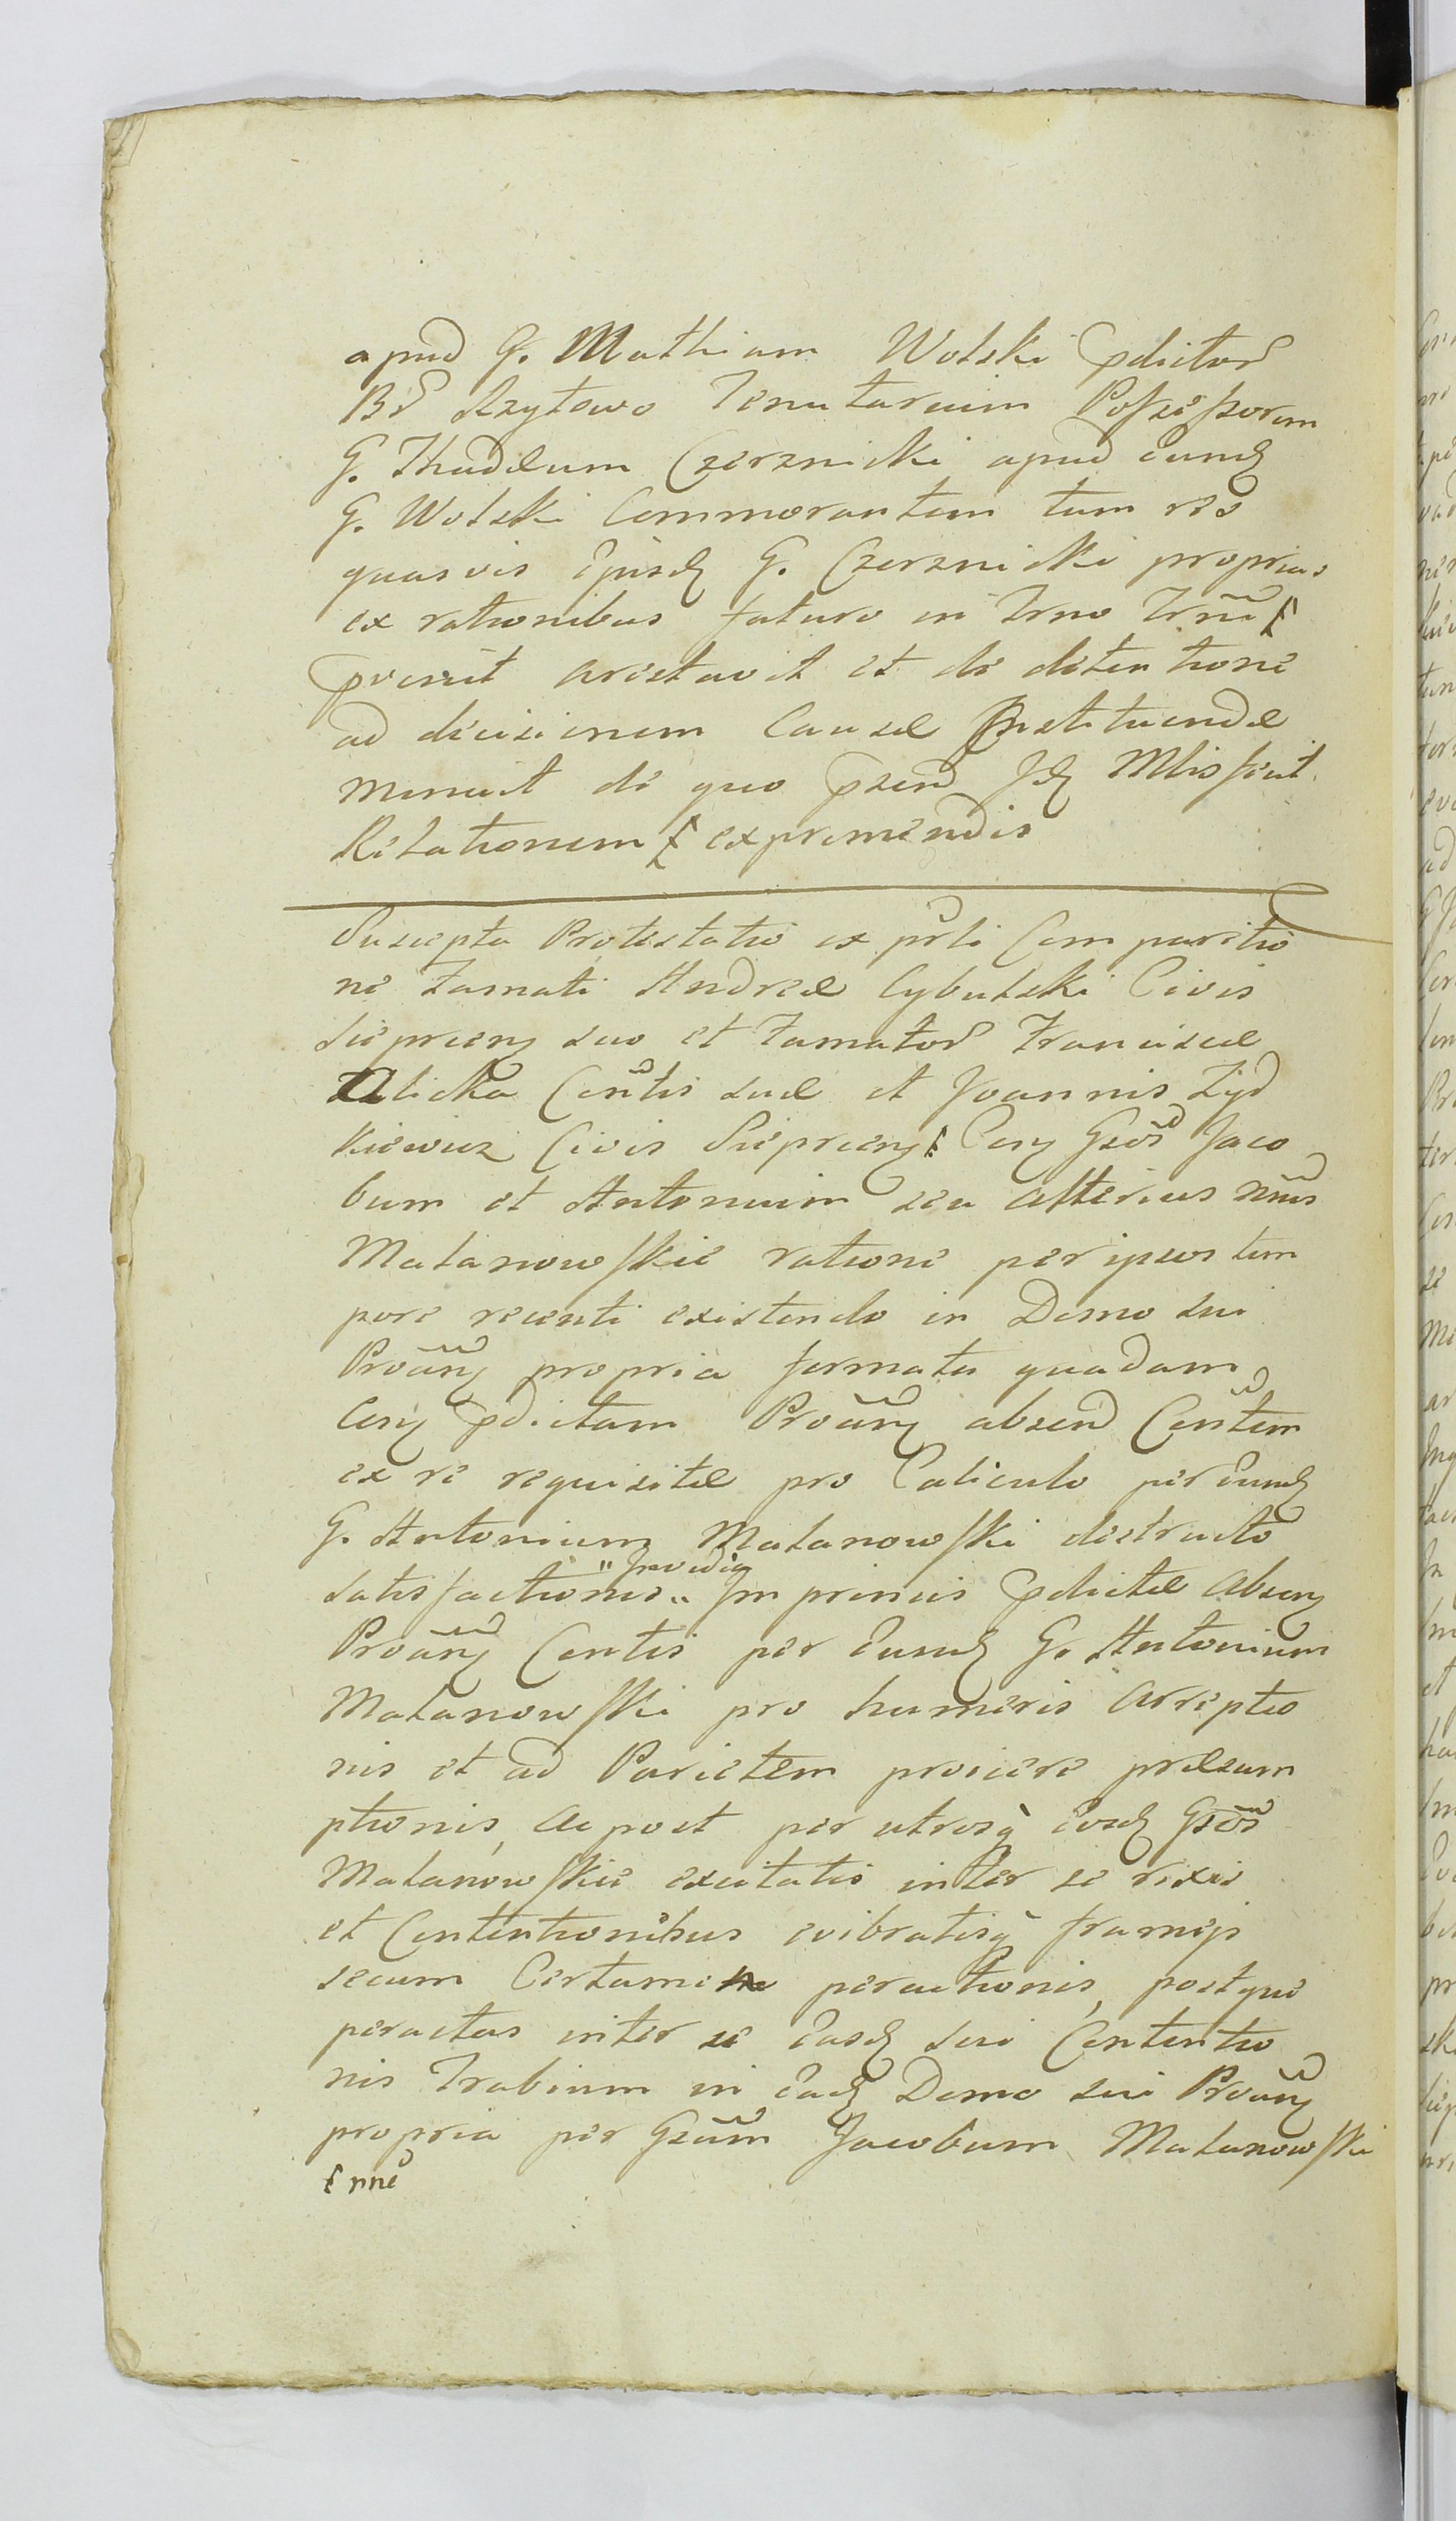 apud G. Mathiam Wolski pdictor
Br Szytowo Tenutarium Possessorem
G. Thadeum Czerznicki apud eund
G. Wolski Commorantem tum res
quasvis Ejusd G. Czerznicki proprias
ex rationibus futuro in Trno Trne
pvenit arestavit et de detentione
ad decisionem Causæ Instituendæ
monuit de quo pzend Jd Mlis fecit
Relationem exprimendis
Suscepta Protestatio ex prli Comparitio
ne Famati Andreæ Cybulski Civis
Sieprcen suo et Famator Franciscæ
Alicka Contis suæ et Joannis Zyd
kiewicz Civis Sieprcen Con Gsos Jaco
bum et Antonium seu alterius nmis
Malanowskie ratione per ipsos tem
pore recenti existendo in Domo sui
Proan propria formata quadam
Con pdictam Proan absend Contem
ex re requisitæ pro Caliculo per eund
G. Antonium Malanowski destructo
satisfactionis In primis pdictæ absen
Proan Contis per eund G. Antonium
Malanowski pro humeris arreptio
nis et ad Parietem proicere præsum
ptionis, ac post per utrosq eosd Gsos
Malanowskie excitatis inter se rixis
et Contentionibus evibratisq frameis
secum Certamine peractionis, postque
peractas inter se easd sui Contentio
nis Trabium in ead Domo sui Proan
propria per Gsum Jacobum Malanowski
nne